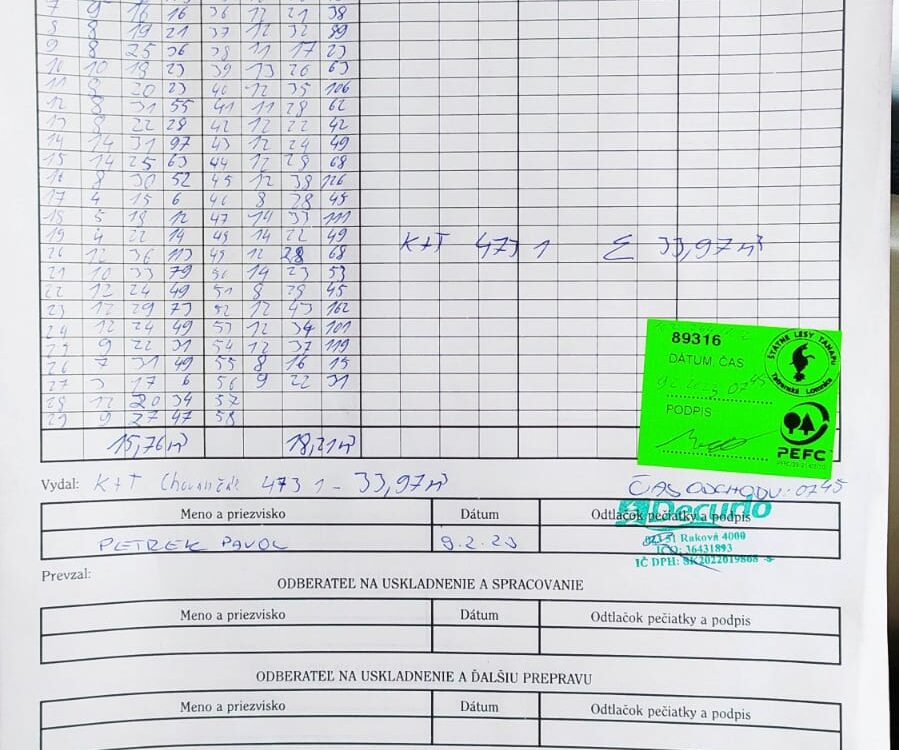 7 9 16 16 36 12 21 38
8 8 19 21 37 12 32 89
9 8 25 36 38 11 17 23
10 10 18 23 39 13 26 63
11 8 20 23 40 12 35 106
12 8 31 55 41 11 28 62
13 8 22 28 42 12 22 42
14 14 31 97 43 12 24 49
15 14 25 63 44 12 28 68
16 8 30 52 45 12 38 126
17 4 15 6 46 8 28 45
18 5 18 12 47 14 33 111
19 4 22 14 48 14 22 49
20 12 36 113 49 12 28 68
K+T 473 1 Σ 33,97m³
21 10 33 79 50 14 23 53
22 12 24 49 51 8 28 45
23 12 29 73 52 12 43 162
24 12 24 49 53 12 34 101
25 9 22 31 54 12 37 119
26 7 31 49 55 8 16 15
27 3 17 6 56 9 22 31
28 12 20 34 57
29 9 27 47 58
15,76m³ 18,21m³
89316
DÁTUM, ČAS
0745
PODPIS
ŠTÁTNE LESY TANAPu
Tatranská Lomnica
PEFC
Vydal: K+T 473 1 - 33,97m³
ČAS ODCHODU: 0745
Meno a priezvisko Dátum Odtlačok pečiatky a podpis
Decudo
PETREK PAVOL 9.2.23
023 51 Raková 4000
IČO: 36431893
IČ DPH: SK2022019808
Prevzal:
ODBERATEĽ NA USKLADNENIE A SPRACOVANIE
Meno a priezvisko Dátum Odtlačok pečiatky a podpis
ODBERATEĽ NA USKLADNENIE A ĎALŠIU PREPRAVU
Meno a priezvisko Dátum Odtlačok pečiatky a podpis